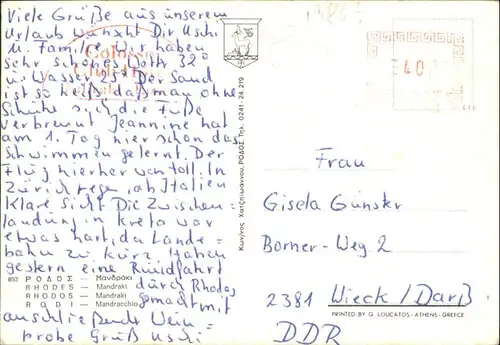 Viele Grüße aus unserem
Urlaub wünscht Dir Uschi
u. Familie. Wir haben
sehr schönes Wetter 32°
u. Wasser 25° Der Sand
ist so heiß daß man ohne
Schuhe sich die Füße
verbrennt Jeannine hat
am 1. Tag hier schon das
Schwimmen gelernt. Der
Flug hierher war toll. In
Zürich regen, ab Italien
Klare Sicht Die Zwischen-
landung in Kreta war
etwas hart, da Lande-
bahn zu kurz. Haben
gestern eine Rundfahrt
durch Rhodos
gemacht mit
anschließender Wein-
probe Gruß Uschi
893 ΡΟΔΟΣ — Μανδράκι
RHODES — Mandraki
RHODOS — Mandraki
RODI — Mandracchio
Κων/νος Χατζηϊωάννου, ΡΟΔΟΣ Τηλ. 0241-24.219
40
Frau
Gisela Günster
Borner-Weg 2
2381 Wieck/Darß
DDR
PRINTED BY G. LOUCATOS - ATHENS - GREECE